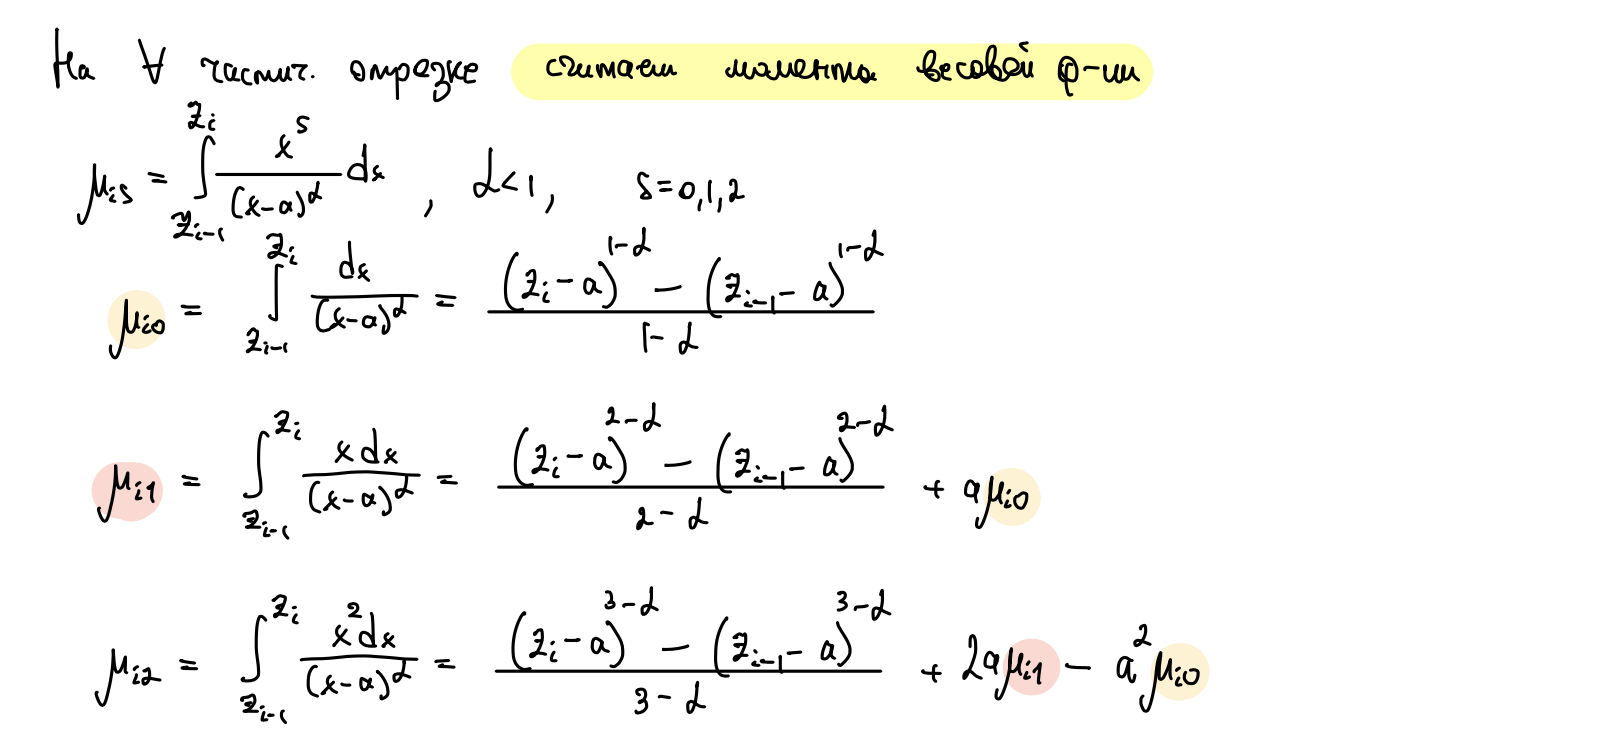 На ∀ частич. отрезке считаем моменты весовой ф-ии
μ_{is} = ∫_{z_{i-1}}^{z_i} x^s/(x-a)^α dx , α<1, s=0,1,2
μ_{i0} = ∫_{z_{i-1}}^{z_i} dx/(x-a)^α = ((z_i-a)^{1-α} - (z_{i-1}-a)^{1-α})/(1-α)
μ_{i1} = ∫_{z_{i-1}}^{z_i} x dx/(x-a)^α = ((z_i-a)^{2-α} - (z_{i-1}-a)^{2-α})/(2-α) + aμ_{i0}
μ_{i2} = ∫_{z_{i-1}}^{z_i} x^2 dx/(x-a)^α = ((z_i-a)^{3-α} - (z_{i-1}-a)^{3-α})/(3-α) + 2aμ_{i1} - a^2 μ_{i0}